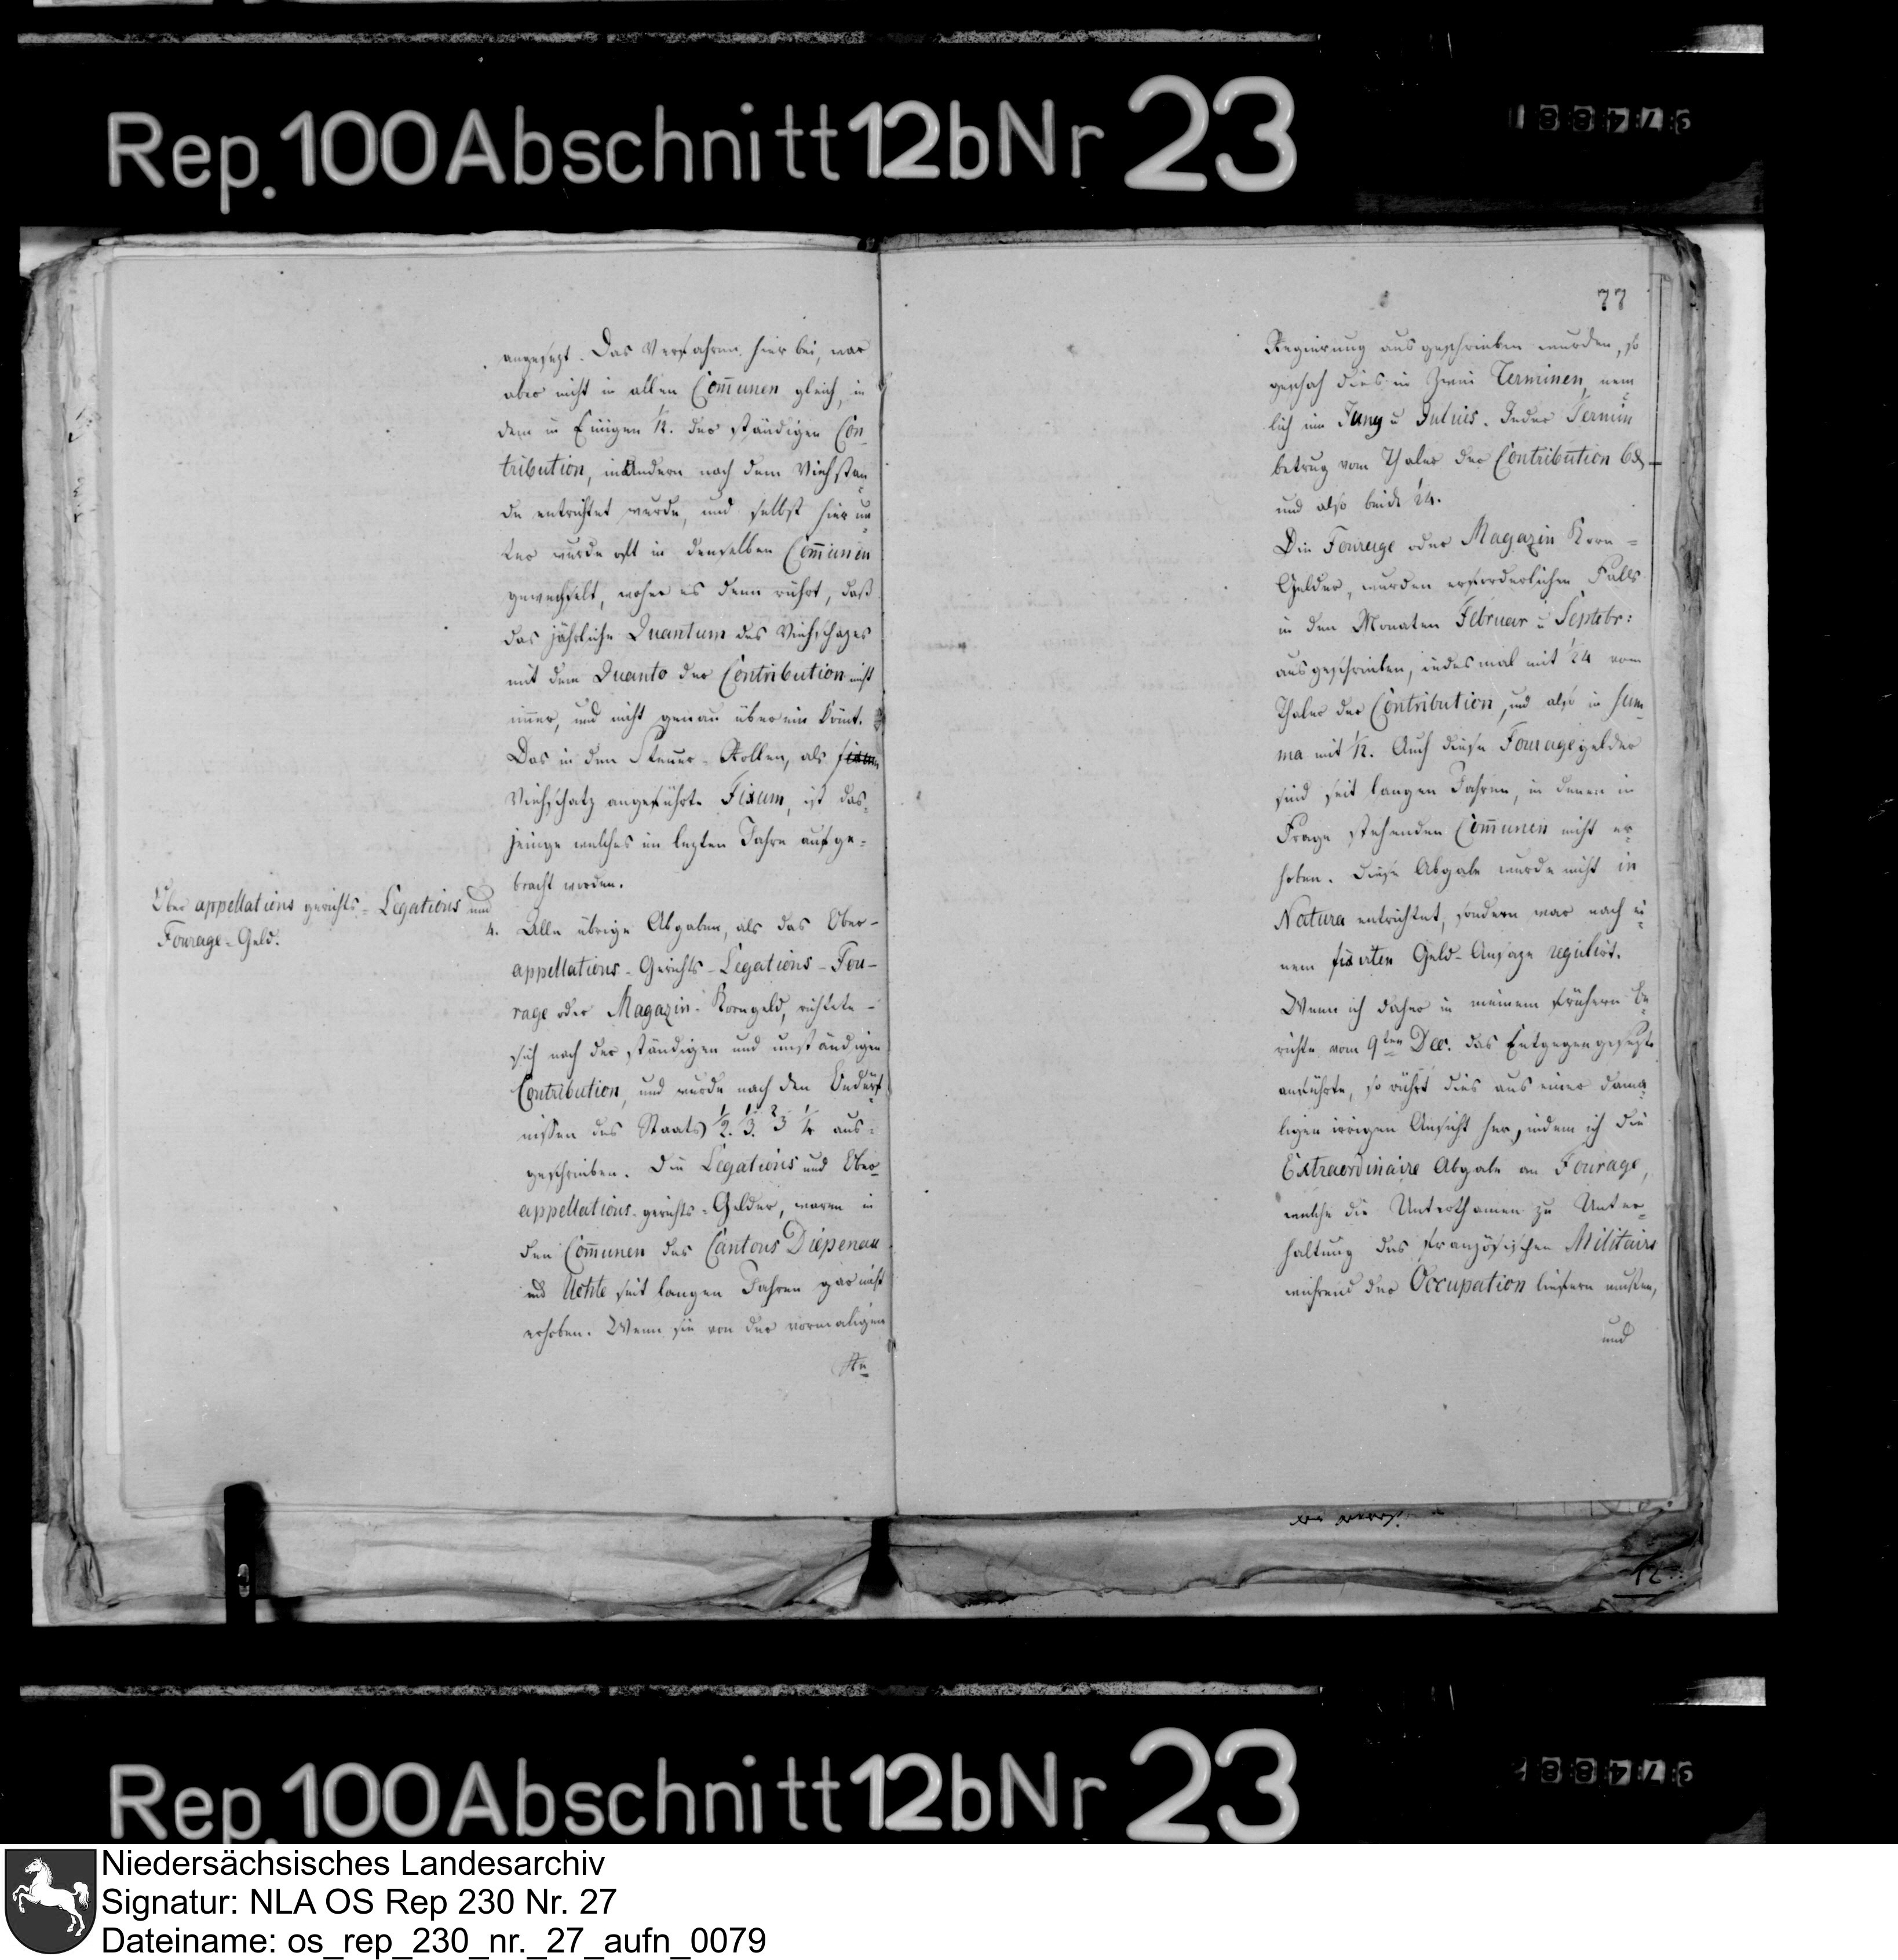 Rep. 100 Abschnitt 12b Nr 23
angesezt. Das Verfahren hier bei, war
aber nicht in allen Com̄unen gleich, in
dem in Einigen 1/12. der ständigen Con
tribution, in Andern nach dem Viehstan
de entrichtet wurde, und selbst hier un
ter wurde oft in denselben Com̄unen
gewechselt, woher es denn rührt, daß
das jährliche Quantum des Viehschazes
mit dem Quanto der Contribution nicht
im̄er, und nicht genau über ein kömt.
Das in den Steuer-Rollen, als
Viehschatz angeführte Fixum, ist das-
jenige welches im lezten Jahre aufge-
bracht worden.
Ober appellations gerichts-Legations und
Fourage-Geld.
4. Alle übrige Abgaben, als das Ober-
appellations-Gerichts-Legations-Fou-
rage oder Magazin-Korngeld, richtete
sich nach der ständigen und unständigen
Contribution, und wurde nach den Bedürf
nissen des Staats 1/2. 1/3. 2/3 1/4 aus-
geschrieben. Die Legations und Ober
appellations-gerichts-Gelder, waren in
den Com̄unen des Cantons Diepenau
und Uchte seit langen Jahren gar nicht
erhoben. Wenn sie von der vormaligen
Re
77
Regierung ausgeschrieben wurden, so
geschah dies in Zwei Terminen, nem
lich im Juny u Julius. Jeder Termin
betrug vom Thaler der Contribution 6 d
und also beide 1/24.
Die Fourage oder Magazin Korn-
Gelder, wurden erforderlichen Falls
in den Monaten Februar u Septebr:
ausgeschrieben, jedesmal mit 1/24 vom
Thaler der Contribution, und also in Sum
ma mit 1/12. Auch diese Fouragegelder
sind seit langen Jahren, in denen in
Frage stehenden Com̄unen nicht er-
hoben. Diese Abgabe wurde nicht in
Natura entrichtet, sondern war nach ei
nem fixirten Geld-Ansaze regulirt.
Wenn ich daher in meinem frühern Be
richte vom 9ten Dec. das Entgegengesezte
anführte, so rührt dies aus einer dama
ligen irrigen Ansicht her, indem ich die
Extraordinaire Abgabe an Fourage,
welche die Unterthanen zu Unter-
haltung des französischen Militairs
während der Occupation liefern mußten,
und
12
Rep. 100 Abschnitt 12b Nr 23
Niedersächsisches Landesarchiv
Signatur: NLA OS Rep 230 Nr. 27
Dateiname: os_rep_230_nr._27_aufn_0079